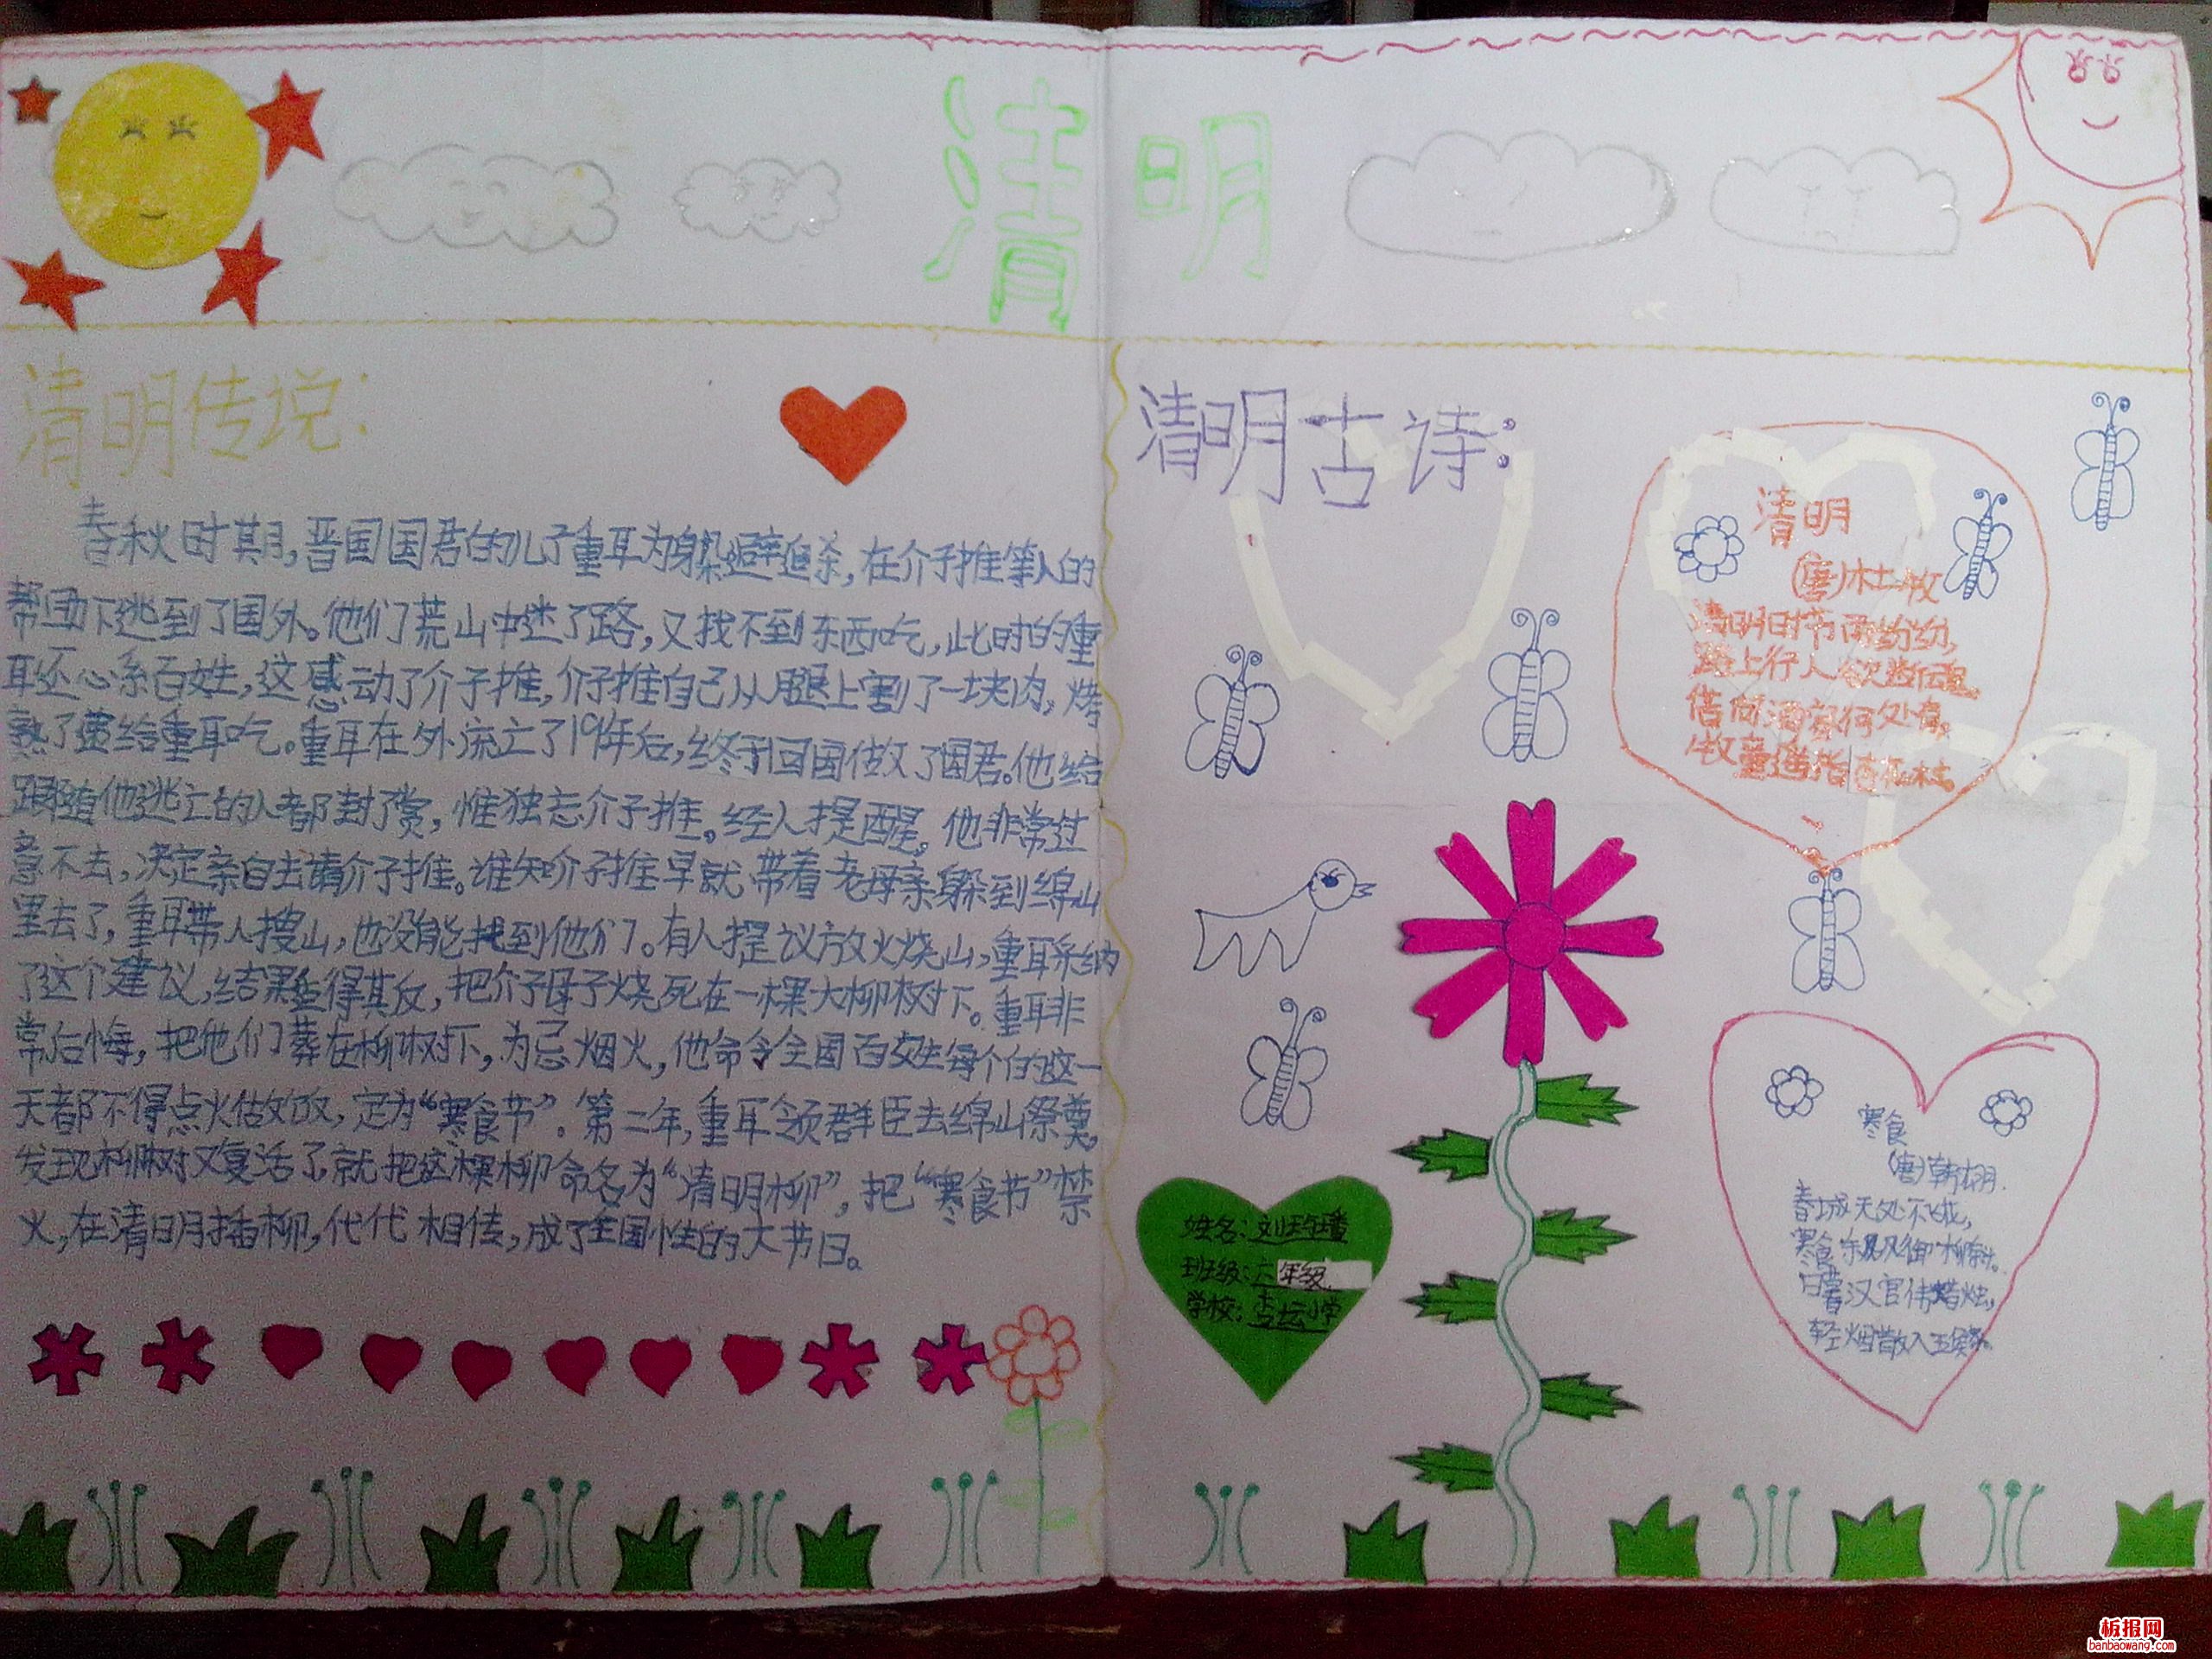 清明
清明传说：
春秋时期，晋国国君的儿子重耳为躲避追杀，在介子推等人的
帮助下逃到了国外。他们荒山中迷了路，又找不到东西吃，此时的重
耳还心系百姓，这感动了介子推，介子推自己从腿上割了一块肉，烤
熟了递给重耳吃。重耳在外流亡了19年后，终于回国做了国君。他给
跟随他逃亡的人都封了赏，惟独忘介子推。经人提醒，他非常过
意不去，决定亲自去请介子推。谁知介子推早就带着老母亲躲到绵山
里去了，重耳带人搜山，也没能找到他们。有人提议放火烧山，重耳采纳
了这个建议，结果适得其反，把介子母子烧死在一棵大柳树下。重耳非
常后悔，把他们葬在柳树下，为忌烟火，他命令全国百姓每个的这一
天都不得点火做饭，定为“寒食节”。第二年，重耳领群臣去绵山祭奠，
发现柳树又复活了就把这棵柳命名为“清明柳”，把“寒食节”禁
火，在清明插柳，代代相传，成了全国性的大节日。
清明古诗：
清明
(唐)杜牧
清明时节雨纷纷，
路上行人欲断魂。
借问酒家何处有，
牧童遥指杏花村。
寒食
(唐)韩翃
春城无处不飞花，
寒食东风御柳斜。
日暮汉宫传蜡烛，
轻烟散入五侯家。
姓名：刘
班级：六年级
学校：杏坛小学
板报网
banbaowang.com